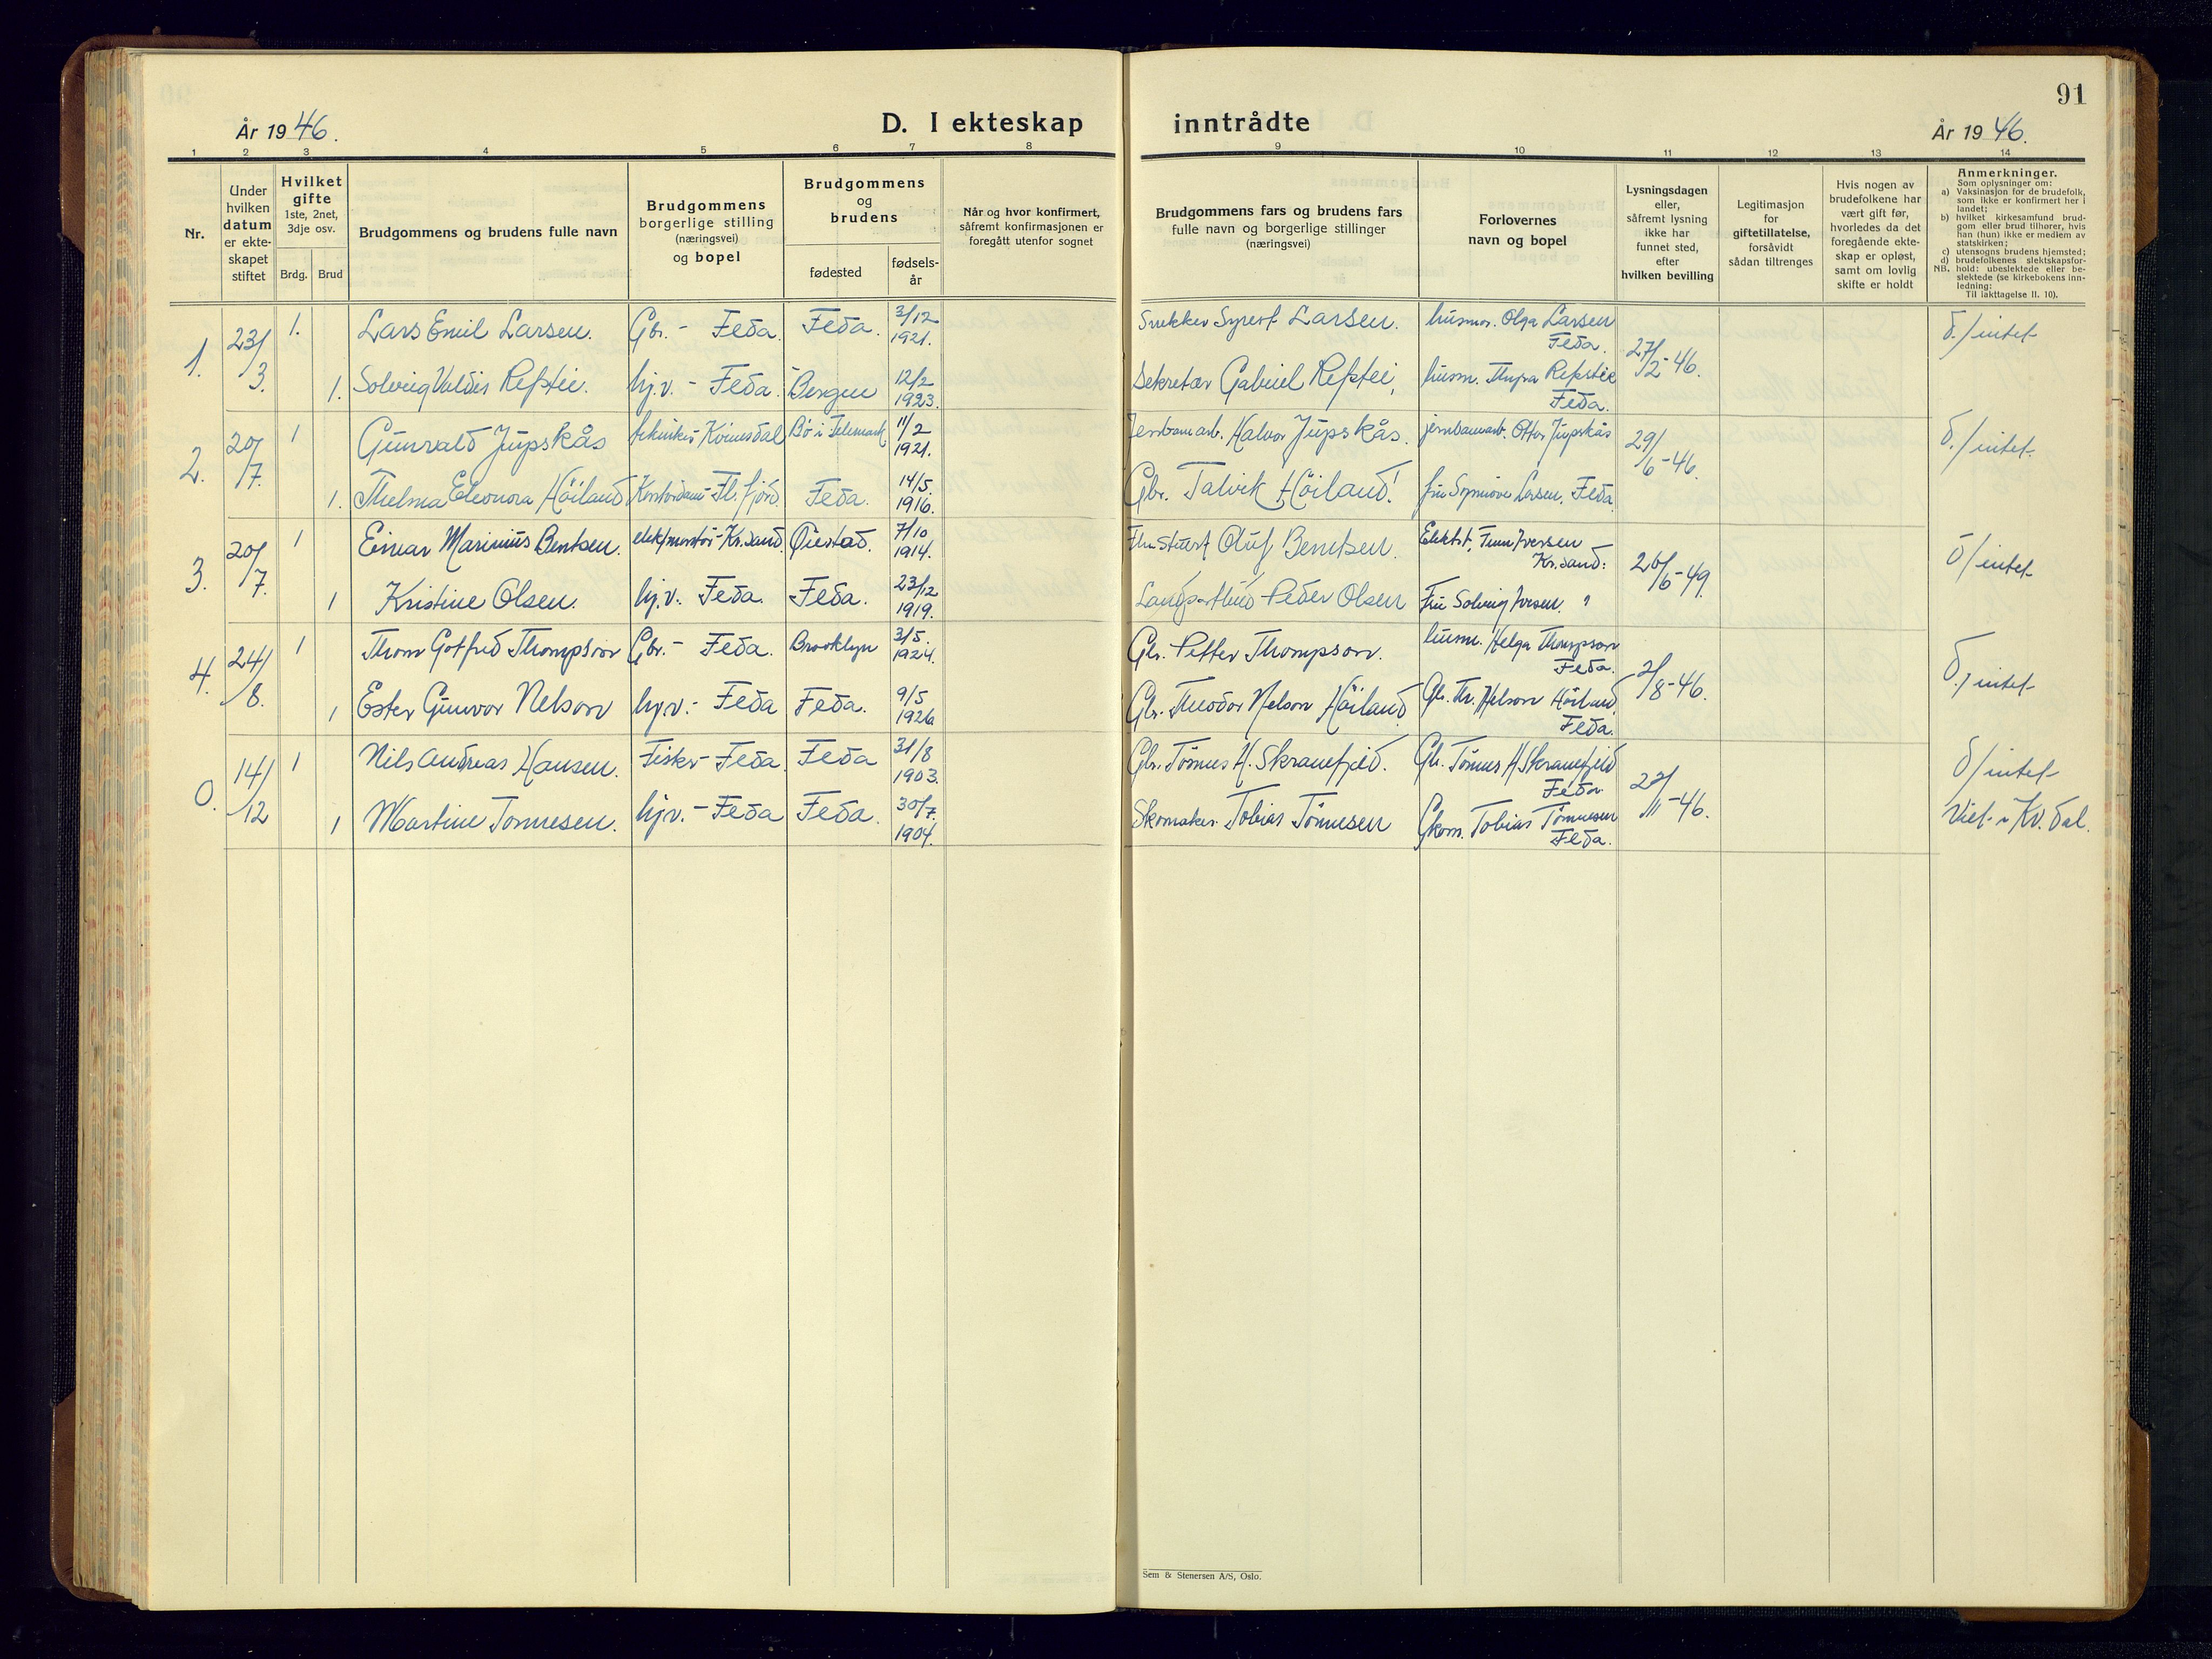 91
År 1946.
D. I ekteskap inntrådte
År 1946.
1 2 3 4 5 6 7 8 9 10 11 12 13 14
Nr.
Under hvilken datum er ekte-skapet stiftet
Hvilket gifte
1ste, 2net, 3dje osv.
Brdg. Brud
Brudgommens og brudens fulle navn
Brudgommens borgerlige stilling (næringsvei) og bopel
Brudgommens og brudens
fødested
fødsels-år
Når og hvor konfirmert, såfremt konfirmasjonen er foregått utenfor sognet
Brudgommens fars og brudens fars fulle navn og borgerlige stillinger (næringsvei)
Forlovernes navn og bopel
Lysningsdagen eller, såfremt lysning ikke har funnet sted, efter hvilken bevilling
Legitimasjon for giftetillatelse, forsåvidt sådan tiltrenges
Hvis nogen av brudefolkene har vært gift før, hvorledes da det foregående ekte-skap er opløst, samt om lovlig skifte er holdt
Anmerkninger.
Som oplysninger om:
a) Vaksinasjon for de brudefolk, som ikke er konfirmert her i landet;
b) hvilket kirkesamfund brud-gom eller brud tilhører, hvis han (hun) ikke er medlem av statskirken;
c) utensogns brudens hjemsted;
d) brudefolkenes slektskapsfor-hold: ubeslektede eller be-slektede (se kirkebokens inn-ledning:
NB. Til iakttagelse II. 10).
1. 23/3. 1. Lars Emil Larsen. Gbr. - Feda. Feda. 3/12 1921. Snekker Syvert Larsen. husmor. Olga Larsen Feda. 27/2-46. d./intet
1. Solveig Valdis Refstie. hj.v. - Feda. Bergen 12/2 1923. Sekretær Gabriel Refstei, husm. Thyra Refstie Feda.
2. 20/7. 1 Gunvald Jupskås tekniker Kvinesdal Bø i Telemark 11/2 1921. Jernbanearb. Halvor Jupskås. jernbanearb. Otter Jupskås 29/6-46. d./intet.
1. Thelma Eleonora Höiland Kontordame - Fl. fjord. Feda. 14/5. 1916. Gbr. Talvik Höiland. fru Synnöve Larsen. Feda
3. 20/7. 1 Einar Marinius Bentsen. elektmontör - Kr.sand. Øiestad. 7/10 1914. Oluf Berntsen. Kr.sand. 26/6-49. d/intet
1 Kristine Olsen. hj.v. Feda. Feda. 23/12 1919. Peder Olsen Fru Solveig Iversen. "
4. 24/8. 1 Thom Gotfred Thompson Gbr. - Feda. Brooklyn 3/5. 1924. Gbr. Petter Thompson. husm. Helga Thompson Feda. 2/8-46. d./intet
1 Ester Gunvor Nelson hj.v. - Feda Feda. 9/5 1926 Gbr. Theodor Nelson Höiland Gbr. Th. Nelson Höiland Feda.
0. 14/12 1 Nils Andreas Hansen. Fisker - Feda. Feda 31/8 1903. Gbr. Tönnes H. Skranefjeld. Gbr. Tönnes H Skranefjeld Feda 22/11-46. d/intet
1 Martine Tonnesen. hj.v. - Feda Feda. 30/7. 1904. Skomaker Tobias Tönnesen Skom. Tobias Tönnesen Feda. Viet i Kv.dal.
Sem & Stenersen A/S, Oslo.